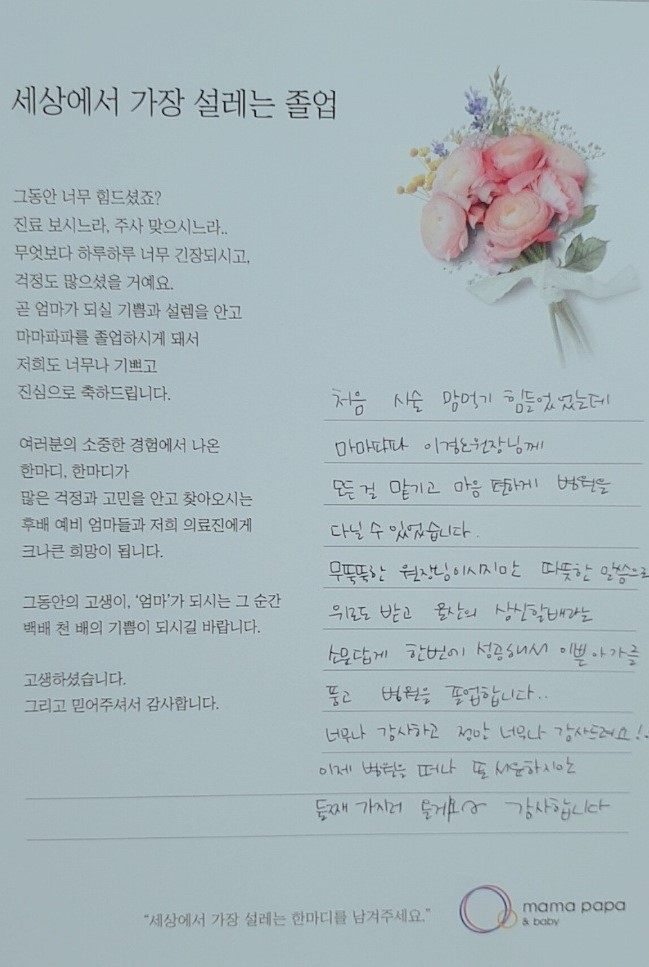 세상에서 가장 설레는 졸업
그동안 너무 힘드셨죠?
진료 보시느라, 주사 맞으시느라..
무엇보다 하루하루 너무 긴장되시고,
걱정도 많으셨을 거예요.
곧 엄마가 되실 기쁨과 설렘을 안고
마마파파를 졸업하시게 돼서
저희도 너무나 기쁘고
진심으로 축하드립니다.
여러분의 소중한 경험에서 나온
한마디, 한마디가
많은 걱정과 고민을 안고 찾아오시는
후배 예비 엄마들과 저희 의료진에게
크나큰 희망이 됩니다.
그동안의 고생이, '엄마'가 되시는 그 순간
백배 천 배의 기쁨이 되시길 바랍니다.
고생하셨습니다.
그리고 믿어주셔서 감사합니다.
처음 시술 맘먹기 힘들었었는데
마마파파 이경은원장님께
모든걸 맡기고 마음 편하게 병원을
다닐 수 있었습니다.
무뚝뚝한 원장님이시지만 따뜻한 말씀으로
위로도 받고 울산의 삼신할배라는
소문답게 한번에 성공해서 이쁜 아가를
품고 병원을 졸업합니다..
너무나 감사하고 정말 너무나 감사드려요!.
이제 병원을 떠나 또 서운하지만
둘째 가지러 올게요~ 감사합니다
"세상에서 가장 설레는 한마디를 남겨주세요."
mama papa
& baby